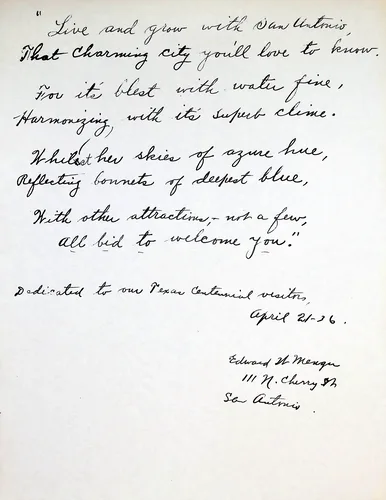 "Live and grow with San Antonio,
That charming city you'll love to know.
For it's blest with water fine,
Harmonezing, with it's superb clime.
Whilest her skies of azure hue,
Reflecting bonnets of deepest blue,
With other attractions, - not a few,
all bid to welcome you."
Dedicated to our Texas Centennial visitors,
April 21-36.
Edward W Menger
111 N. Cherry St
San Antonio.